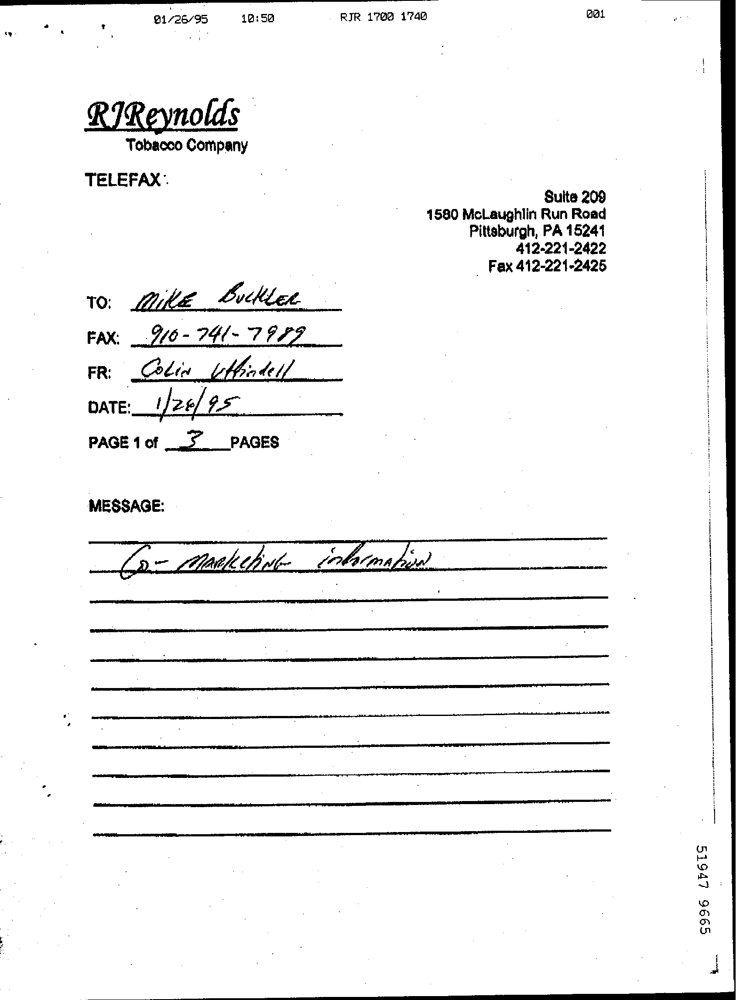 01/26/95 10:50 RJR 1700 1740 001
RJReynolds
Tobacco Company
TELEFAX:
Suite 209
1580 McLaughlin Run Road
Pittsburgh, PA 15241
412-221-2422
Fax 412-221-2425
TO: MIKE BUCKLER
FAX: 910-741-7989
FR: Colin Whindell
DATE: 1/26/95
PAGE 1 of 3 PAGES
MESSAGE:
Co-Marketing information
51947 9665